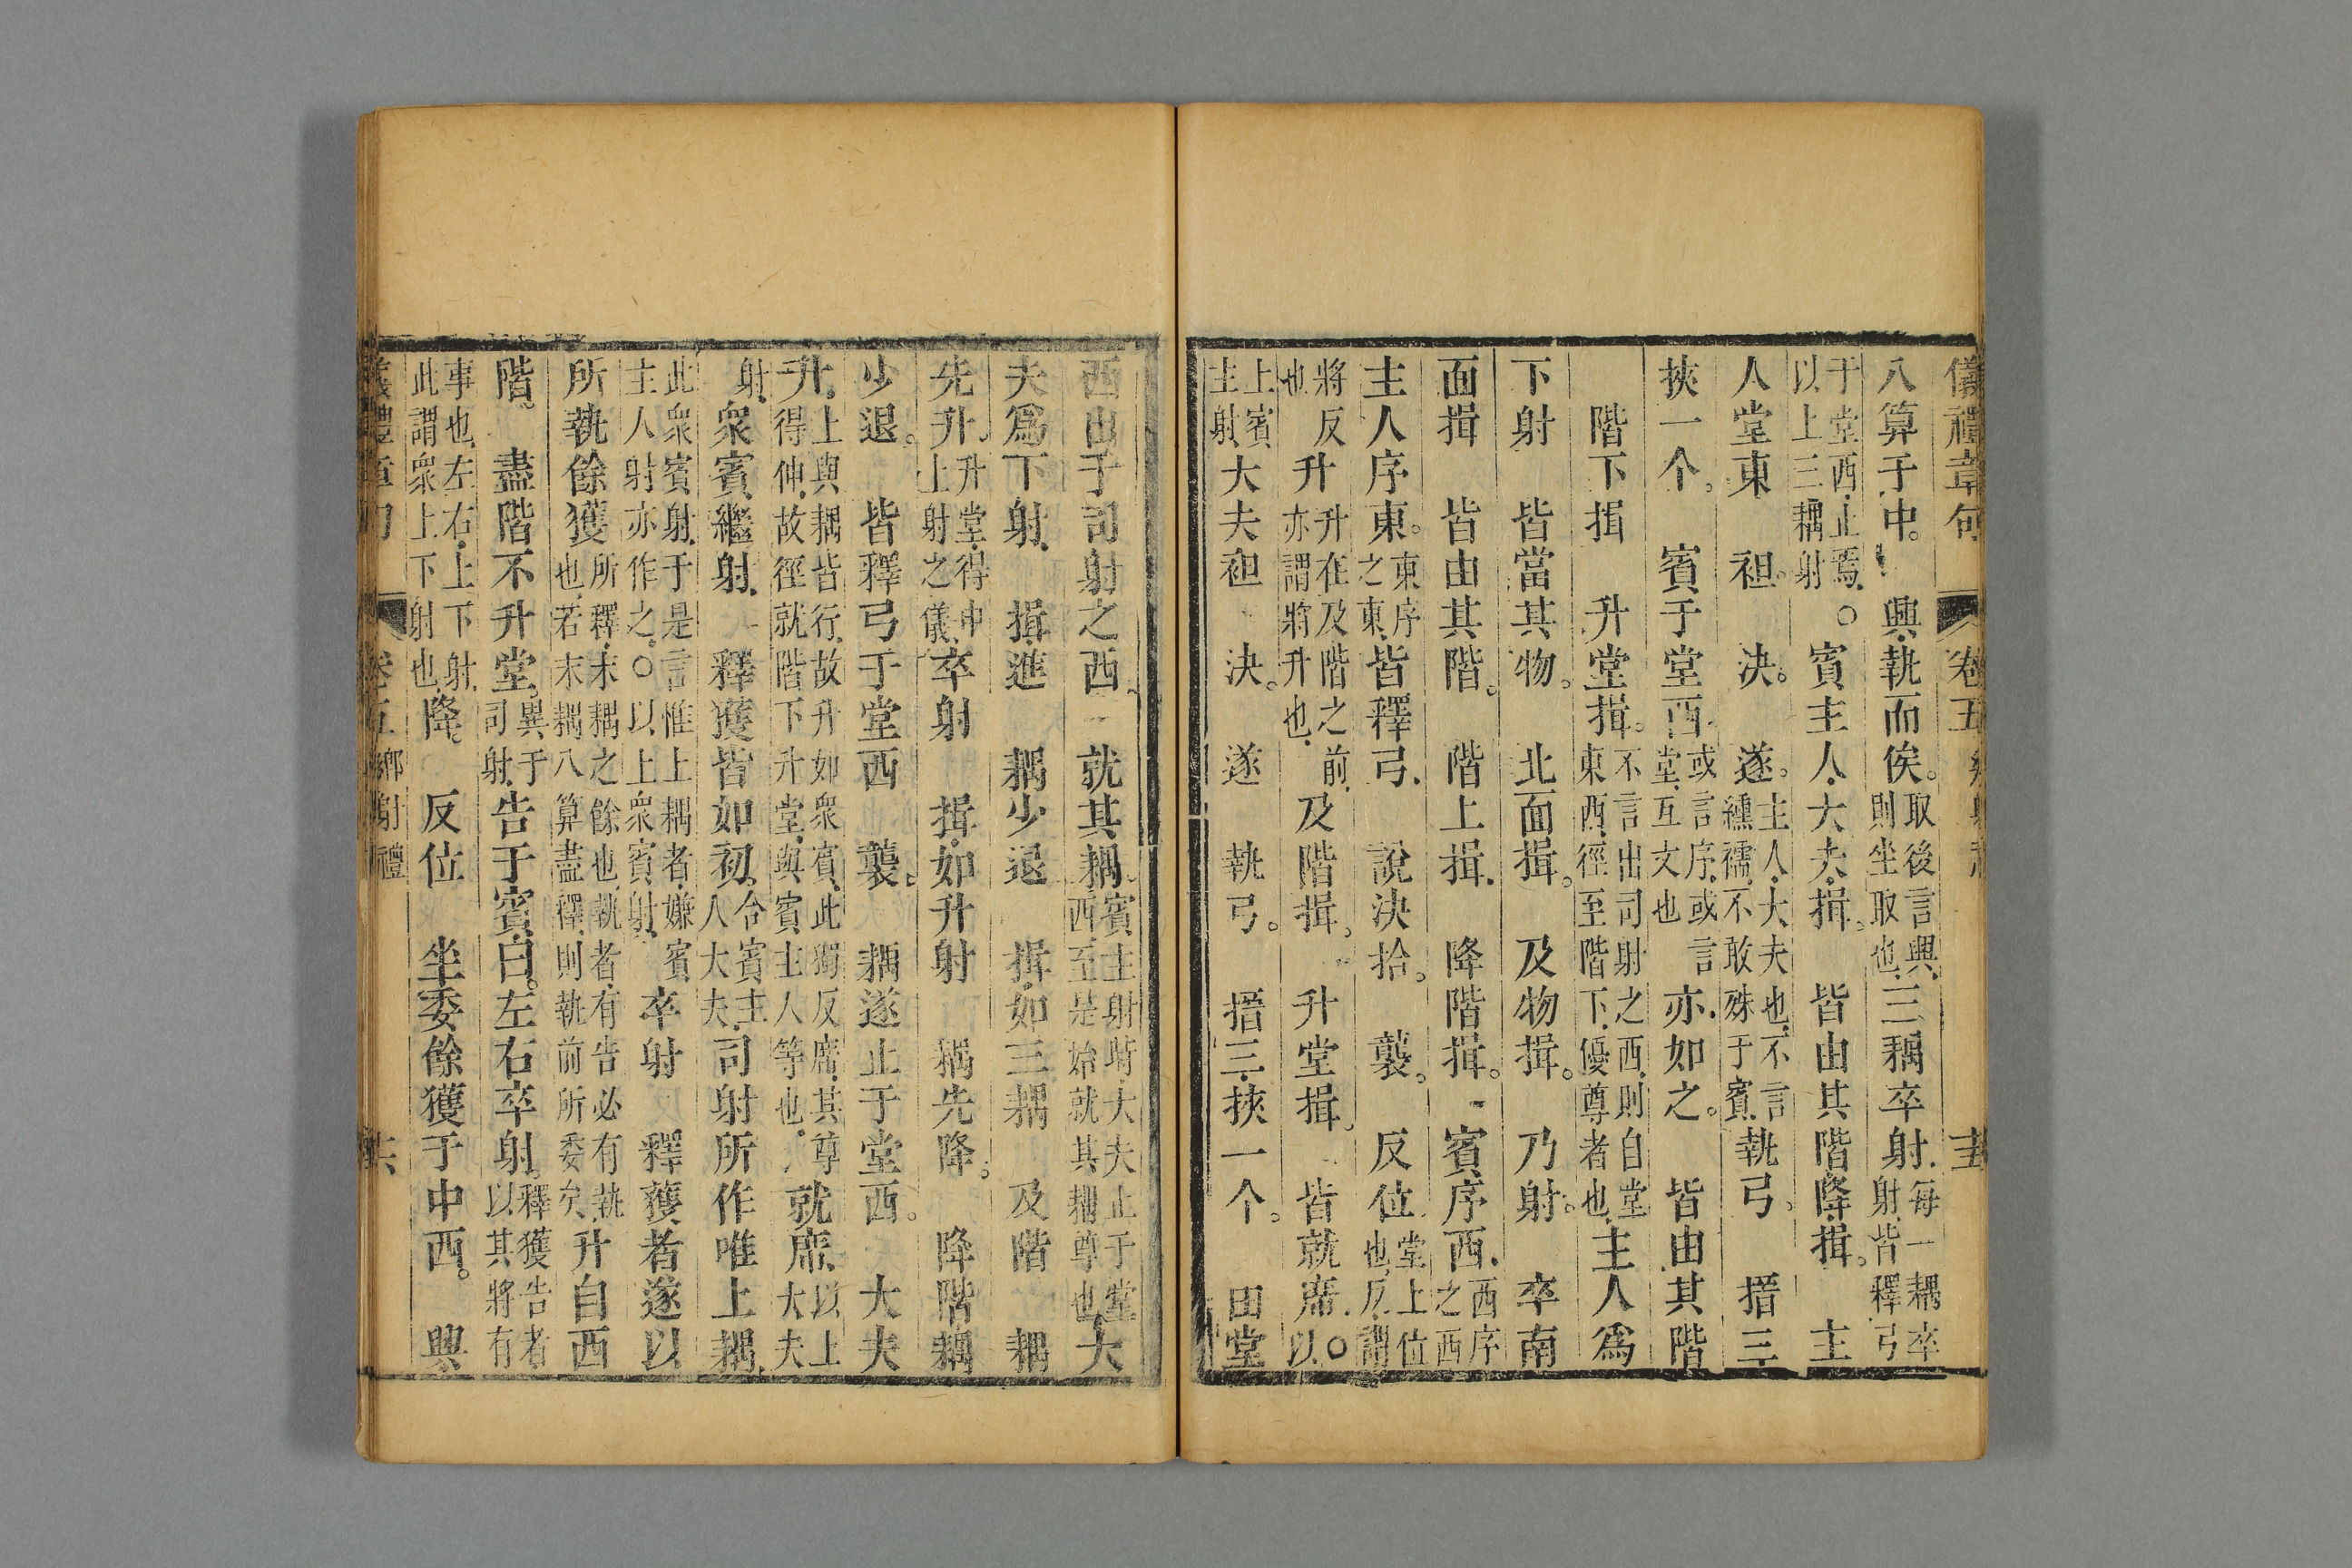 儀禮章句 卷五 十五
八算于中。興執而俟。取後言興則坐取也三耦卒射每一耦卒射皆釋弓
于堂西止焉以上三耦射○賓主人大夫揖。皆由其階降揖。主
人堂東袒。決。遂。主人大夫也不言纁襦不敢殊于賓執弓。搢三
挾一个。賓于堂西或言序或言堂互文也亦如之。皆由其階
階下揖升堂揖。不言出司射之西則自堂東西徑至階下優尊者也主人爲
下射皆當其物。北面揖。及物揖。乃射。卒南
面揖皆由其階。階上揖降階揖。賓序西西序之西
主人序東。東序之東皆釋弓說決拾。襲。反位堂上位也反謂
將反也升升在及階之前亦謂將升也及階揖。升堂揖。皆就席○以
上賓主射大夫袒決。遂執弓。搢三挾一个。由堂
西由于司射之西就其耦賓主射時大夫止于堂西至是始就其耦尊也大
夫爲下射揖進耦少退揖如三耦及階耦
先升升堂得中上射之儀卒射揖如升射耦先降。降階耦
少退。皆釋弓于堂西襲耦遂止于堂西。大夫
升上與耦皆行故升如衆賓此獨反席其尊得伸故徑就階下升堂與賓主人等也就席以上大夫
射衆賓繼射釋獲皆如初。合賓主人大夫司射所作唯上耦
此衆賓射于是言惟上耦者嫌賓主人射亦作之○以上衆賓射卒射釋獲者遂以
所執餘獲所釋末耦之餘也執者有告必有執也若末耦八算盡釋則執前所委矣升自西
階盡階不升堂異于司射告于賓曰。左右卒射。釋獲告者以其將有
事也左右上下射此謂衆上下射也降。反位坐委餘獲于中西。興
儀禮章句 卷五 鄉射禮 十六